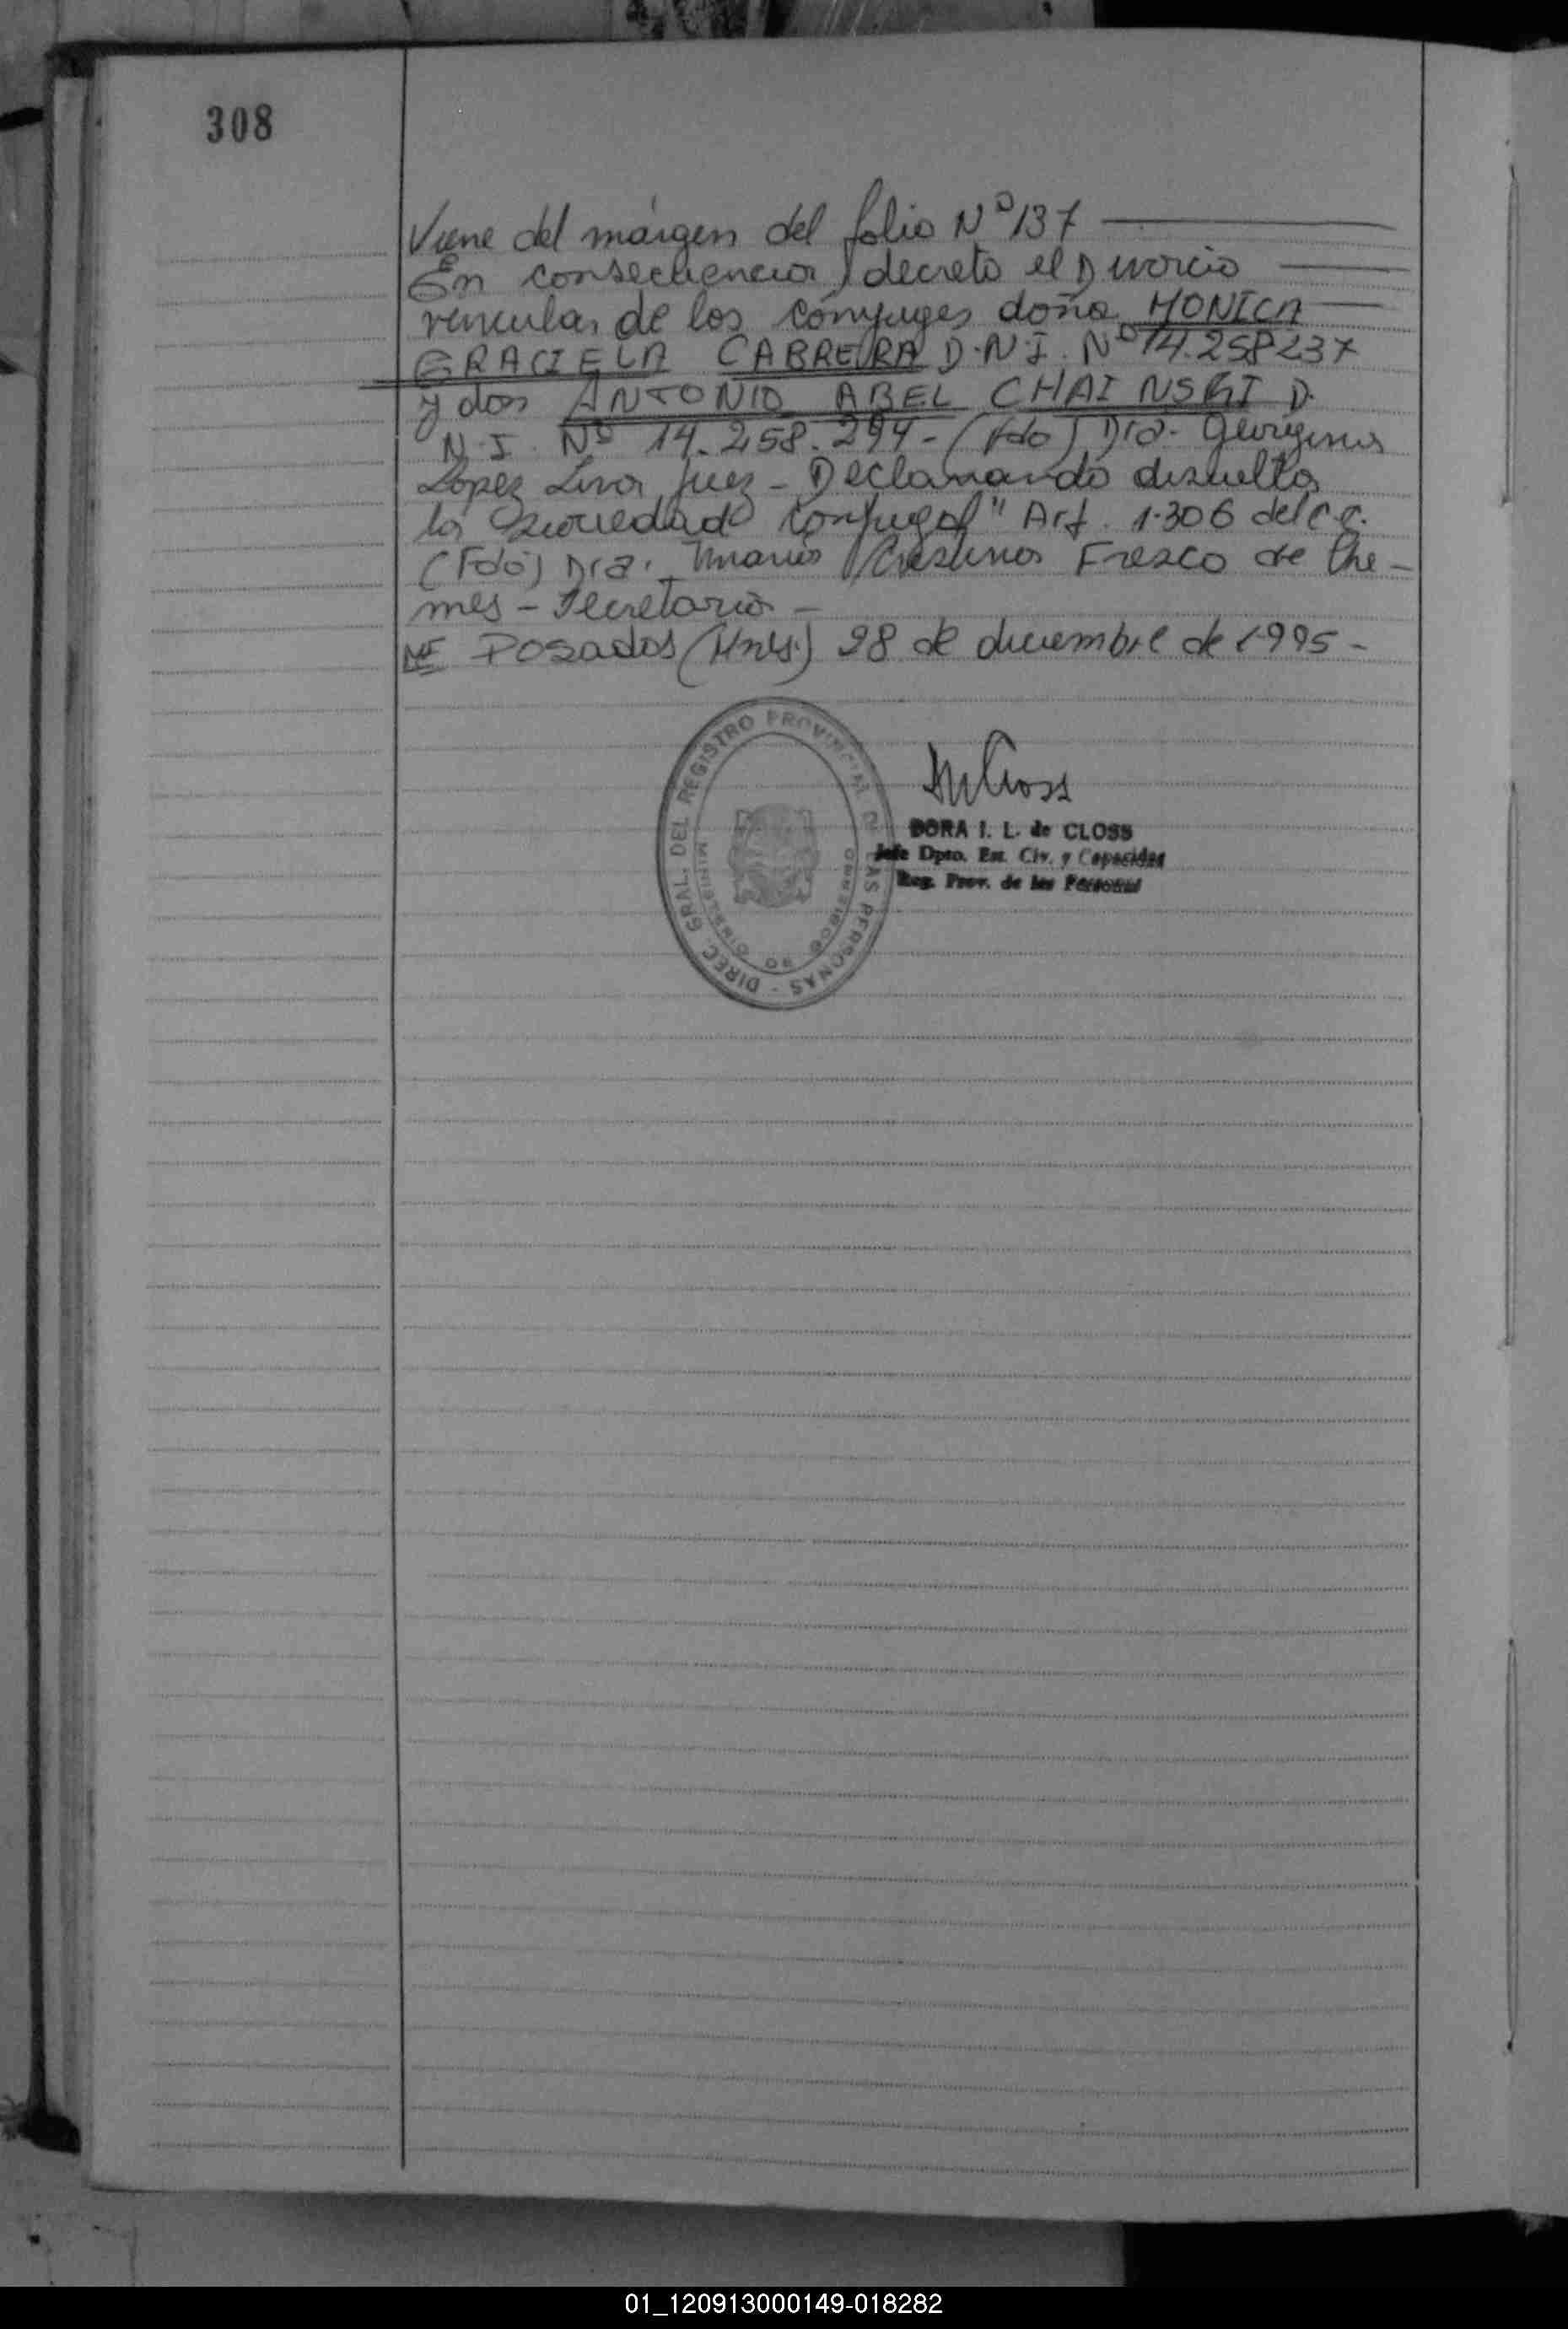 308
Viene del márgen del folio Nº 137
En consecuencia decreto el Divorcio
vincular de los cónyuges doña MONICA
GRACIELA CABRERA D.N.I. Nº 14.258237
y don ANTONIO ABEL CHAINSKI D.
N.I. Nº 14.258.294- (Fdo) Dra. Georgina
López Liva Juez - Declarando disuelta
la Sociedad Conyugal" Art. 1.306 del C.C.
(Fdo) Dra. María Cristina Fresco de Che-
mes - Secretaria -
Posadas (Mnes.) 28 de diciembre de 1995-
DIREC. GRAL. DEL REGISTRO PROVINCIAL DE LAS PERSONAS -
MINISTERIO DE GOBIERNO
DORA I. L. de CLOSS
Jefe Dpto. Est. Civ. y Capacidad
Reg. Prov. de las Personas
01_120913000149-018282